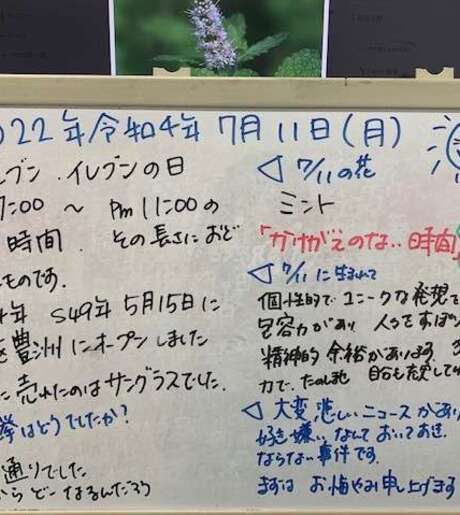 022年令和4年 7月11日(月)
ブン.イレブンの日
7:00 〜 Pm 11:00の
時間. その長さにおど
ものです.
年 S49年 5月15日に
豊洲にオープンしました
に売れたのはサングラスでした.
挙はどうでしたか?
通りでした
から どーなるんだろう
◁ 7/11の花
ミント
「かけがえのない時間」
◁ 7/11に生まれて
個性的で ユニークな発想で
包容力があり 人を
精神的 余裕があります.
力で、
◁ 大変 悲しいニュースがあり
好き嫌い なんて おいておき.
ならない事件です.
まずは お悔やみ申し上げます